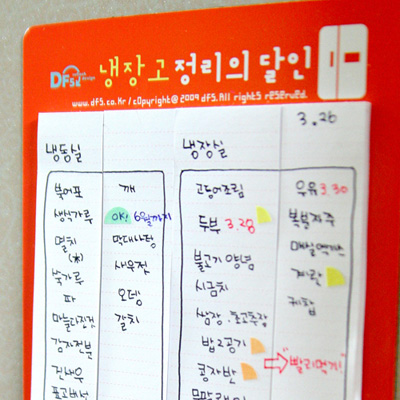 DFS 냉장고 정리의 달인
www.dfs.co.kr / copyright@ 2009 dfs. All rights reserved.
3.26
냉동실
북어포
생식가루
멸치
쑥가루
파
마늘다진것
감자전분
건새우
표고버섯
깨
OK! 6월까지
막대사탕
새우젓
오뎅
갈치
냉장실
고등어조림
두부 3.28
불고기양념
시금치
쌈장.초고추장
밥2공기
콩자반
우유 3.30
복분자주
매실엑기스
계란
케찹
"빨리먹기!"